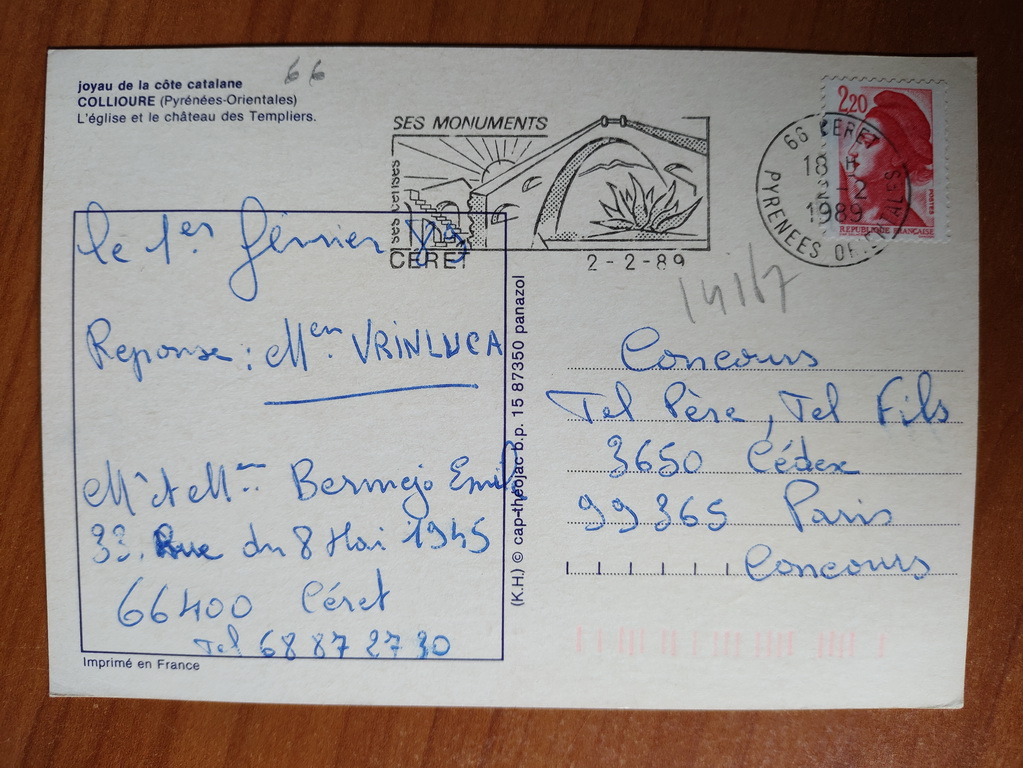 joyau de la côte catalane
COLLIOURE (Pyrénées-Orientales)
L'église et le château des Templiers.
66
SES MONUMENTS
CERET
2-2-89
66 CERET
18 H
2-2
1989
PYRENEES OR.ALES
2,20
POSTES
REPUBLIQUE FRANÇAISE
14167
le 1er février
Reponse : Men VRINLUCA
Mr et Mme Bermejo Emile
33. Rue du 8 Mai 1945
66400 Céret
Tel 68 87 27 30
Imprimé en France
(K.H.) © cap-théojac b.p. 15 87350 panazol
Concours
Tel Père, Tel Fils
3650 Cédex
99365 Paris
Concours